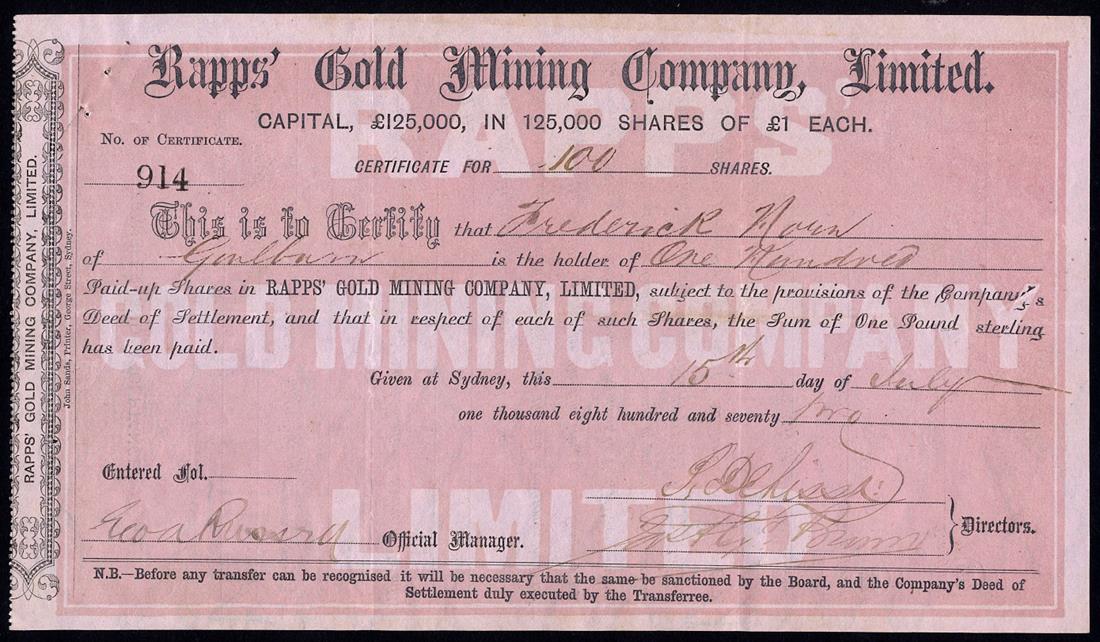 Rapps' Gold Mining Company, Limited.
CAPITAL, £125,000, IN 125,000 SHARES OF £1 EACH.
No. of Certificate.
914
CERTIFICATE FOR 100 SHARES.
This is to Certify that Frederick Horn
of Goulburn is the holder of One Hundred
Paid-up Shares in RAPPS' GOLD MINING COMPANY, LIMITED, subject to the provisions of the Company's
Deed of Settlement, and that in respect of each of such Shares, the Sum of One Pound sterling
has been paid.
Given at Sydney, this 15th day of July
one thousand eight hundred and seventy two
Entered Fol.
Official Manager.
Directors.
N.B.—Before any transfer can be recognised it will be necessary that the same be sanctioned by the Board, and the Company's Deed of
Settlement duly executed by the Transferree.
RAPPS' GOLD MINING COMPANY, LIMITED.
John Sands, Printer, George Street, Sydney.
RAPPS'
GOLD MINING COMPANY
LIMITED